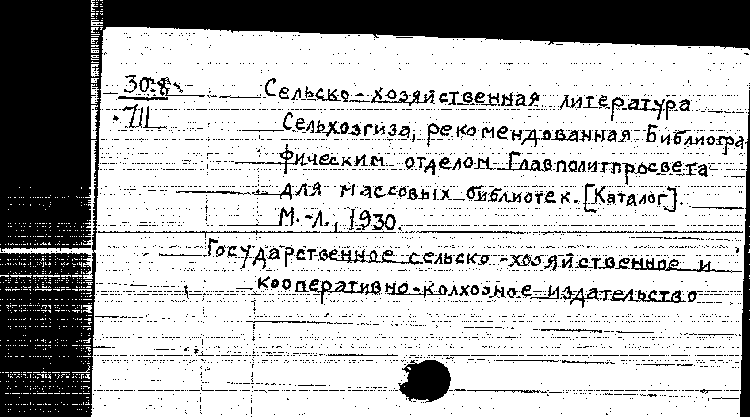 30-8
711
Сельско-хозяйственная литература
Сельхозгиза, рекомендованная Библиогра
фическим отделом Главполитпросвета
для массовых библиотек. [Каталог].
М.-Л., 1930.
Государственное сельско-хозяйственное и
кооперативно-колхозное издательство